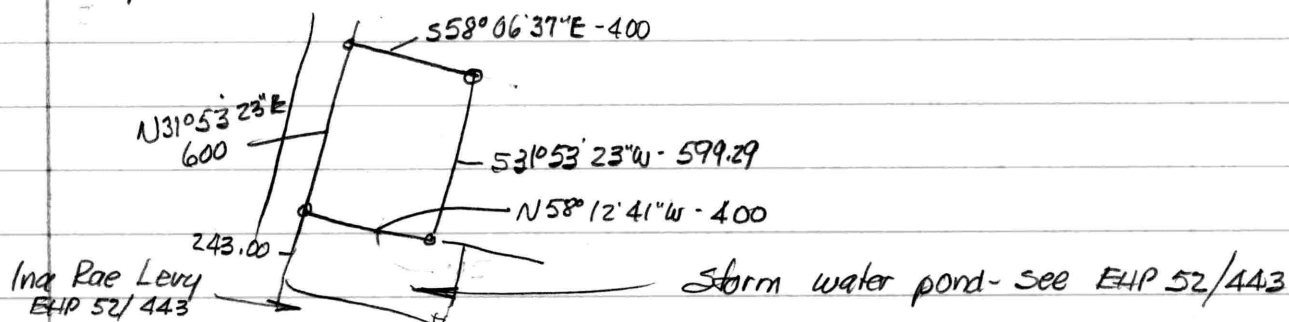 S58° 06' 37"E - 400
N31° 53' 23"E
600
S31° 53' 23"W - 599.29
N58° 12' 41"W - 400
243.00
Ina Rae Levy
EHP 52/443
Storm water pond - see EHP 52/443